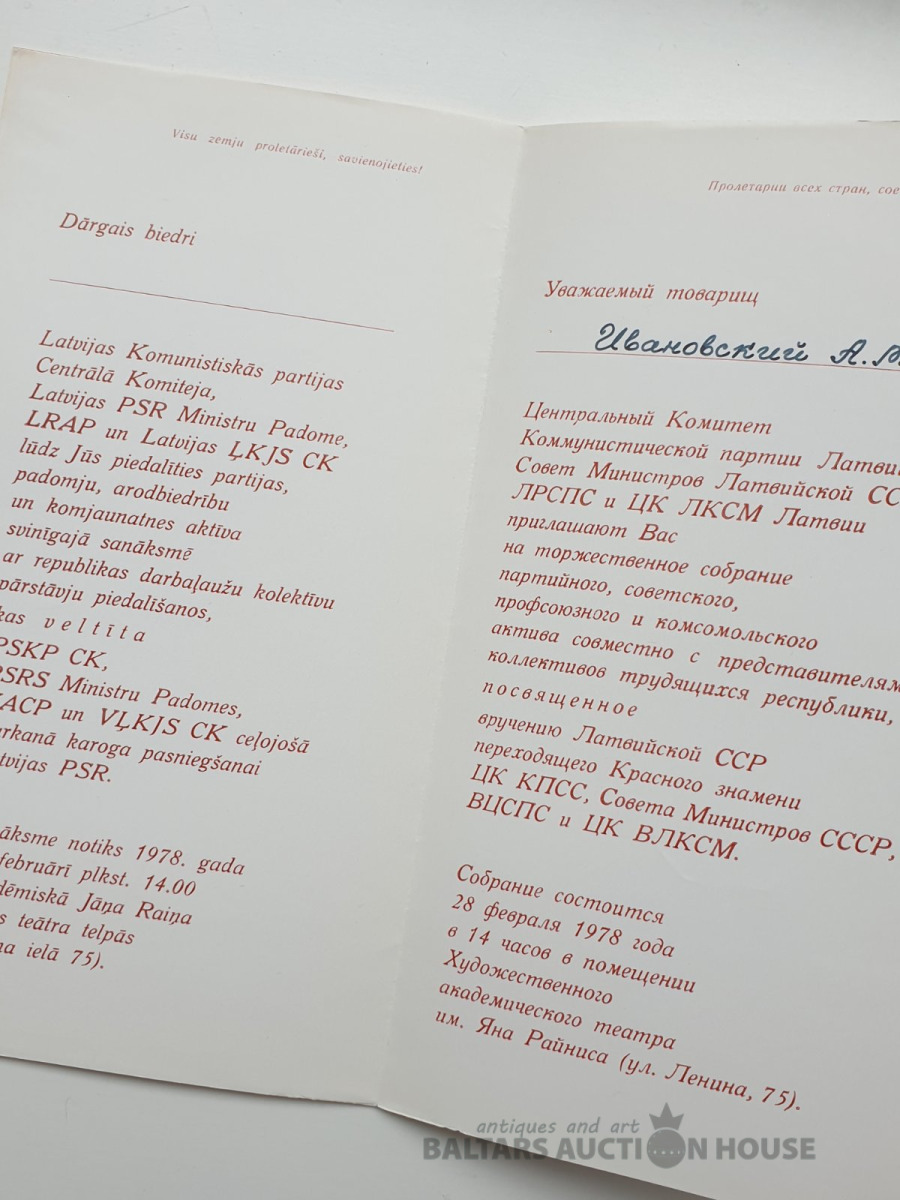 Visu zemju proletārieši, savienojieties!
Dārgais biedri
Latvijas Komunistiskās partijas
Centrālā Komiteja,
Latvijas PSR Ministru Padome,
LRAP un Latvijas ĻKJS CK
lūdz Jūs piedalīties partijas,
padomju, arodbiedrību
un komjaunatnes aktīva
svinīgajā sanāksmē
ar republikas darbaļaužu kolektīvu
pārstāvju piedalīšanos,
kas veltīta
PSKP CK,
PSRS Ministru Padomes,
VACP un VĻKJS CK ceļojošā
arkanā karoga pasniegšanai
atvijas PSR.
āksme notiks 1978. gada
februārī plkst. 14.00
dēmiskā Jāņa Raiņa
s teātra telpās
na ielā 75).
Пролетарии всех стран, сое
Уважаемый товарищ
Ивановский А.
Центральный Комитет
Коммунистической партии Латви
Совет Министров Латвийской СС
ЛРСПС и ЦК ЛКСМ Латвии
приглашают Вас
на торжественное собрание
партийного, советского,
профсоюзного и комсомольского
актива совместно с представителям
коллективов трудящихся республики,
посвященное
вручению Латвийской ССР
переходящего Красного знамени
ЦК КПСС, Совета Министров СССР,
ВЦСПС и ЦК ВЛКСМ.
Собрание состоится
28 февраля 1978 года
в 14 часов в помещении
Художественного
академического театра
им. Яна Райниса (ул. Ленина, 75).
antiques and art
BALTARS AUCTION HOUSE